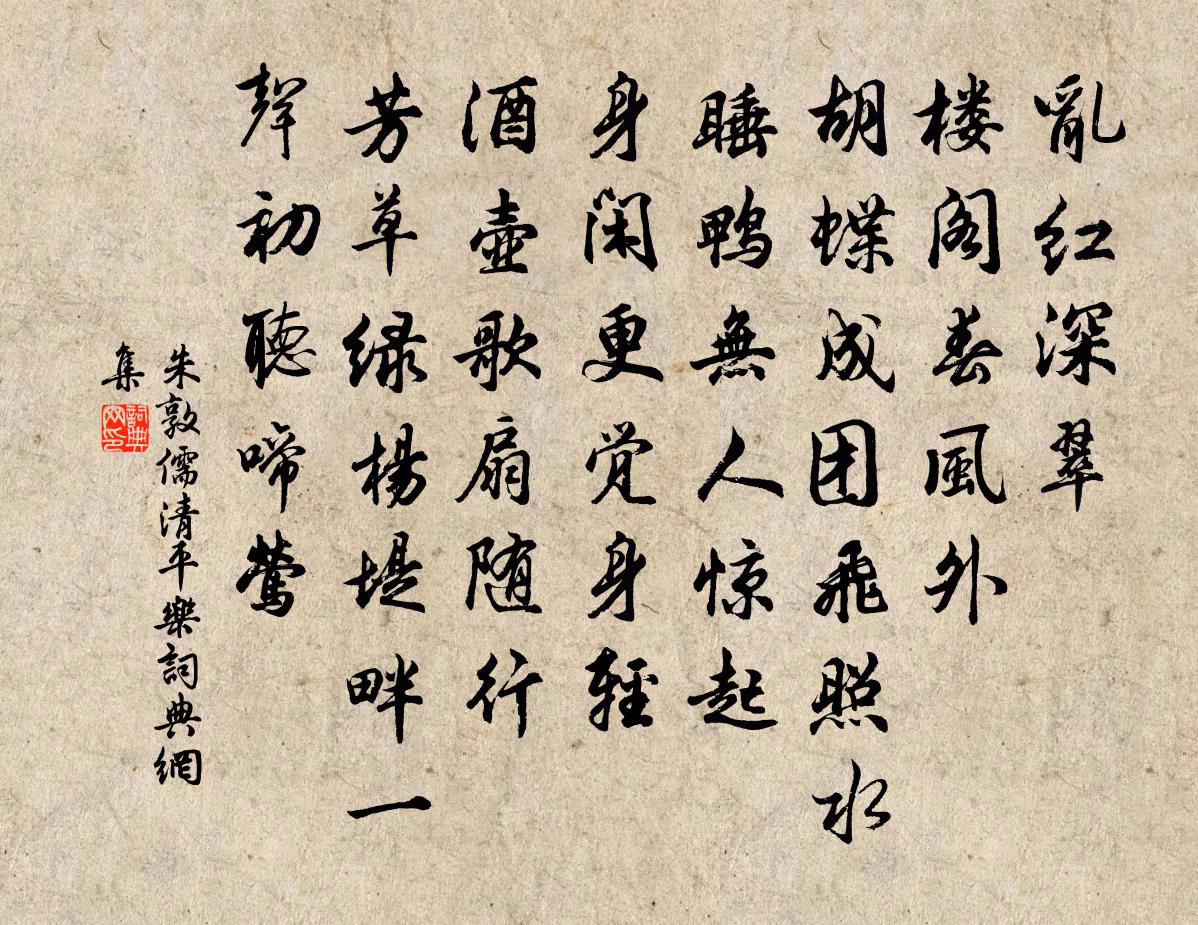 亂红深翠
楼阁春風外
胡蝶成团飛照水
睡鸭無人惊起
身闲更觉身輕
酒壺歌扇随行
芳草绿楊堤畔一
聲初聽啼鶯
朱敦儒清平樂詞典網
集
詞典
网印